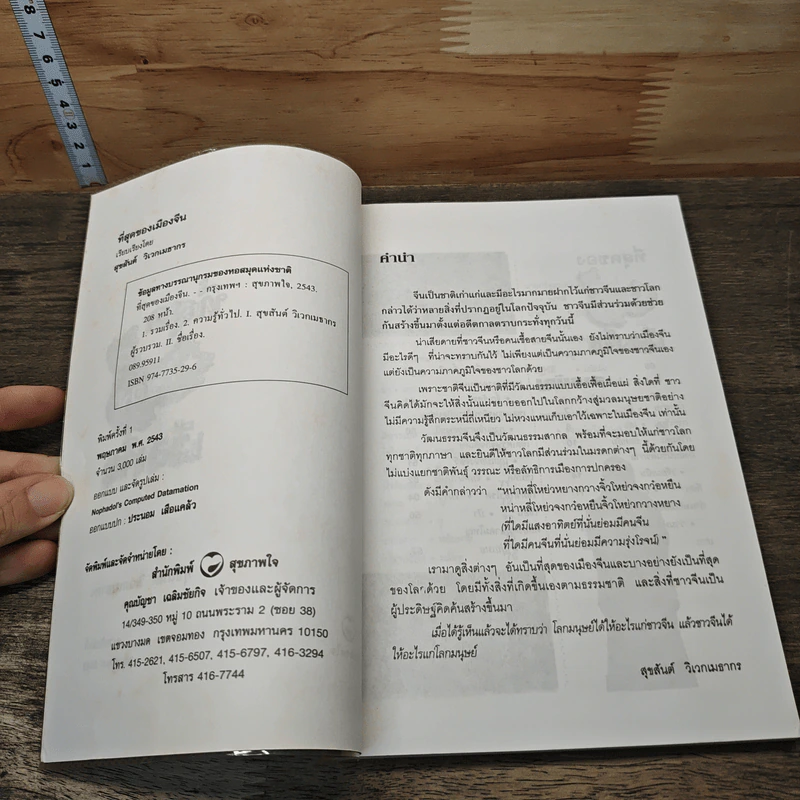 8
7
6
5
4
3
2
1
ที่สุดของเมืองจีน
เรียบเรียงโดย
สุขสันต์ วิเวกเมธากร
ข้อมูลทางบรรณานุกรมของหอสมุดแห่งชาติ
ที่สุดของเมืองจีน. - - กรุงเทพฯ : สุขภาพใจ, 2543.
208 หน้า.
1. รวมเรื่อง. 2. ความรู้ทั่วไป. I. สุขสันต์ วิเวกเมธากร
ผู้รวบรวม. II. ชื่อเรื่อง.
089.95911
ISBN 974-7735-29-6
พิมพ์ครั้งที่ 1
พฤษภาคม พ.ศ. 2543
จำนวน 3,000 เล่ม
ออกแบบ และจัดรูปเล่ม :
Nophadol's Computed Datamation
ออกแบบปก : ประนอม เสือแคล้ว
จัดพิมพ์และจัดจำหน่ายโดย :
สำนักพิมพ์ สุขภาพใจ
คุณบัญชา เฉลิมชัยกิจ เจ้าของและผู้จัดการ
14/349-350 หมู่ 10 ถนนพระราม 2 (ซอย 38)
แขวงบางมด เขตจอมทอง กรุงเทพมหานคร 10150
โทร. 415-2621, 415-6507, 415-6797, 416-3294
โทรสาร 416-7744
คำนำ
จีนเป็นชาติเก่าแก่และมีอะไรมากมายฝากไว้แก่ชาวจีนและชาวโลก
กล่าวได้ว่าหลายสิ่งที่ปรากฏอยู่ในโลกปัจจุบัน ชาวจีนมีส่วนร่วมด้วยช่วย
กันสร้างขึ้นมาตั้งแต่อดีตกาลตราบกระทั่งทุกวันนี้
น่าเสียดายที่ชาวจีนหรือคนเชื้อสายจีนนั้นเอง ยังไม่ทราบว่าเมืองจีน
มีอะไรดีๆ ที่น่าจะทราบกันไว้ ไม่เพียงแต่เป็นความภาคภูมิใจของชาวจีนเอง
แต่ยังเป็นความภาคภูมิใจของชาวโลกด้วย
เพราะชาติจีนเป็นชาติที่มีวัฒนธรรมแบบเอื้อเฟื้อเผื่อแผ่ สิ่งใดที่ ชาว
จีนคิดได้มักจะให้สิ่งนั้นแผ่ขยายออกไปในโลกกว้างสู่มวลมนุษยชาติอย่าง
ไม่มีความรู้สึกตระหนี่ถี่เหนียว ไม่หวงแหนเก็บเอาไว้เฉพาะในเมืองจีน เท่านั้น
วัฒนธรรมจีนจึงเป็นวัฒนธรรมสากล พร้อมที่จะมอบให้แก่ชาวโลก
ทุกชาติทุกภาษา และยินดีให้ชาวโลกมีส่วนร่วมในมรดกต่างๆ นี้ด้วยกันโดย
ไม่แบ่งแยกชาติพันธุ์ วรรณะ หรือลัทธิการเมืองการปกครอง
ดังมีคำกล่าวว่า "หน่าหลี่โหย่วหยางกวางจิ้วโหย่วจงกว๋อหยืน
หน่าหลี่โหย่วจงกว๋อหยืนจิ้วโหย่วกวางหยาง
(ที่ใดมีแสงอาทิตย์ที่นั่นย่อมมีคนจีน
ที่ใดมีคนจีนที่นั่นย่อมมีความรุ่งโรจน์) "
เรามาดูสิ่งต่างๆ อันเป็นที่สุดของเมืองจีนและบางอย่างยังเป็นที่สุด
ของโลกด้วย โดยมีทั้งสิ่งที่เกิดขึ้นเองตามธรรมชาติ และสิ่งที่ชาวจีนเป็น
ผู้ประดิษฐ์คิดค้นสร้างขึ้นมา
เมื่อได้รู้เห็นแล้วจะได้ทราบว่า โลกมนุษย์ได้ให้อะไรแก่ชาวจีน แล้วชาวจีนได้
ให้อะไรแก่โลกมนุษย์
สุขสันต์ วิเวกเมธากร